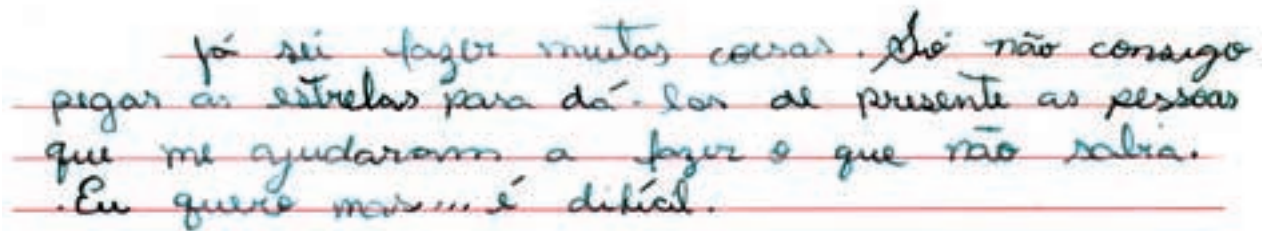 Já sei fazer muitas coisas. Só não consigo
pegar as estrelas para dá-las de presente as pessoas
que me ajudaram a fazer o que não sabia.
.Eu quero mas.... é difícil.